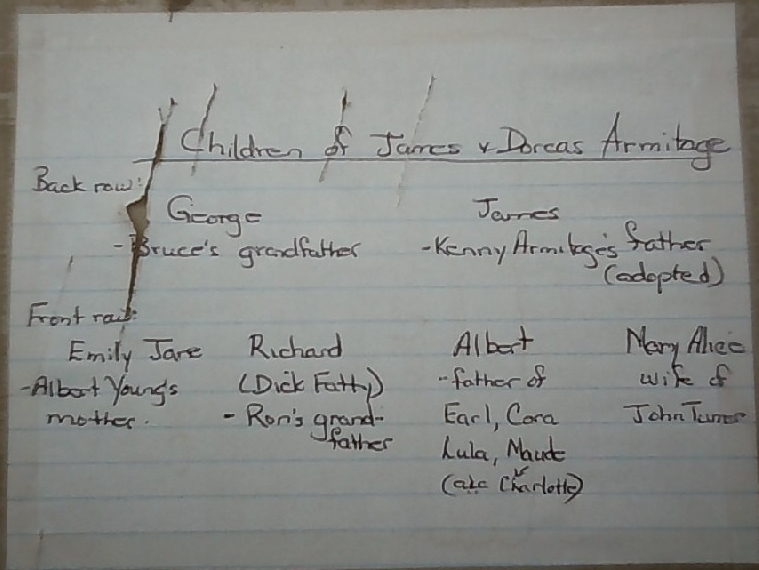 Children of James & Dorcas Armitage
Back row:
George James
- Bruce's grandfather - Kenny Armitage's father
(adopted)
Front row:
Emily Jane Richard Albert Mary Alice
- Albert Young's (Dick Fatty) - father of wife of
mother. - Ron's grand- Earl, Cora John Turner
father Lula, Maude
(aka Charlotte)